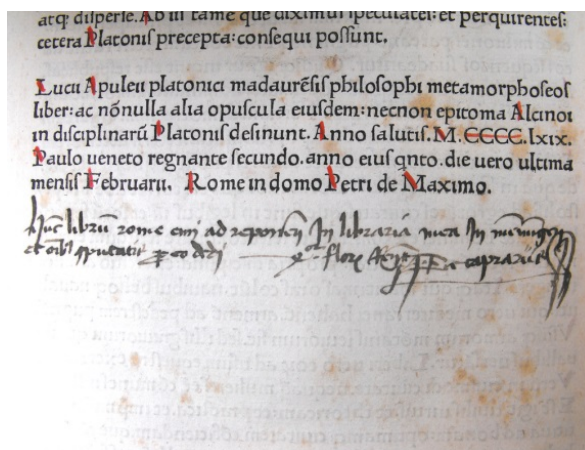 atq; disperse. Ab iis tamē que diximus speculatei: et perquirentes:
cetera Platonis precepta: consequi possunt.
Lucii Apuleii platonici madaurēsis philosophi metamorphoseos
liber: ac nōnulla alia opuscula eiusdem: necnon epitoma Alcinoi
in disciplinarū Platonis desinunt. Anno salutis. M. CCCC. lxix.
Paulo ueneto regnante secundo. anno eius qnto. die uero ultima
mensis Februarii. Rome in domo Petri de Maximo.
librū rome emi ad In libraria mea In